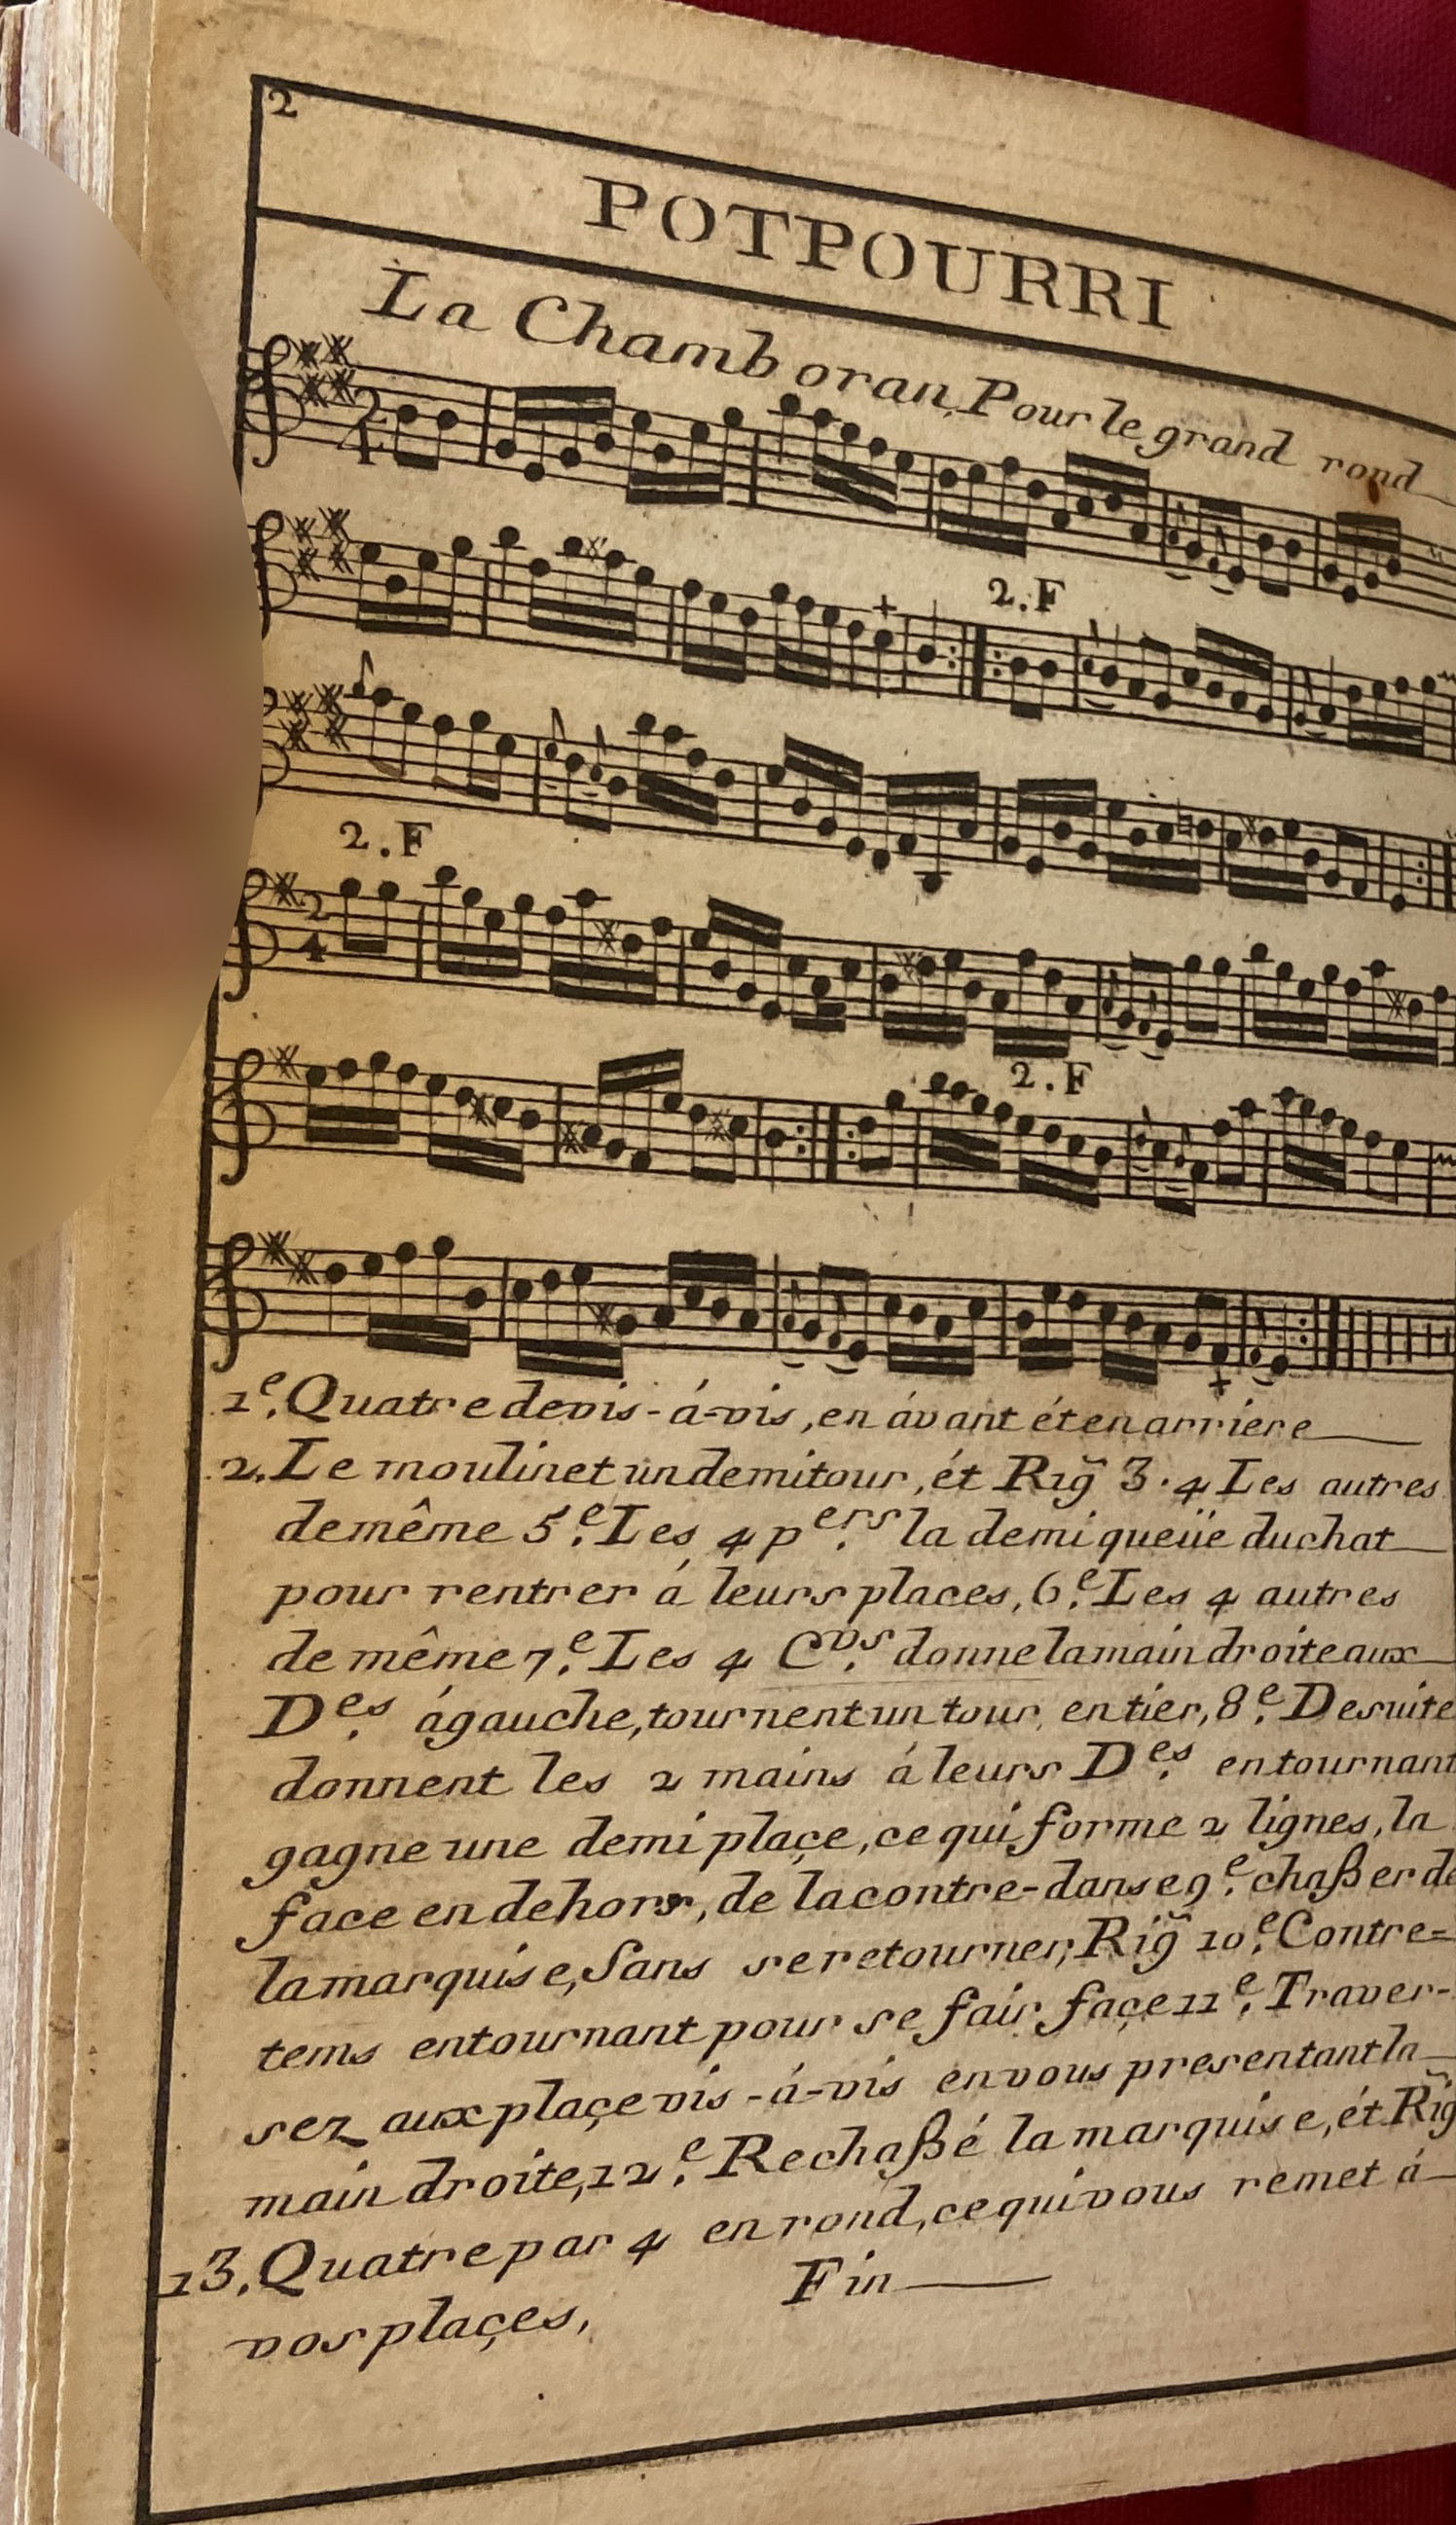 2
POTPOURRI
La Chamboran, Pour le grand rond
2
4
2.F
2.F
2
4
2.F
1e. Quatre devis-á-vis, en ávant ét en arriere
2. Le moulinet un demi tour, ét Rig̃ 3.4 Les autres
de même 5e. Les 4 pers. la demi queüe du chat
pour rentrer á leurs places, 6e. Les 4 autres
de même 7e. Les 4 Cvs. donne la main droite aux
Des. ágauche, tournent un tour entier, 8e. De suite
donnent les 2 mains á leurs Des. en tournant
gagne une demi plaçe, ce qui forme 2 lignes, la
face en dehors, de la contre-danse 9e. chaßer de
la marquise, Sans se retourner, Rig̃ 10e. Contre=
tems en tournant pour se fair façe 11e. Traver-
sez aux plaçe vis-á-vis en vous presentant la
main droite, 12e. Rechaßé la marquise, ét Rig̃
13. Quatre par 4 en rond, ce qui vous remet á
vos plaçes,
Fin